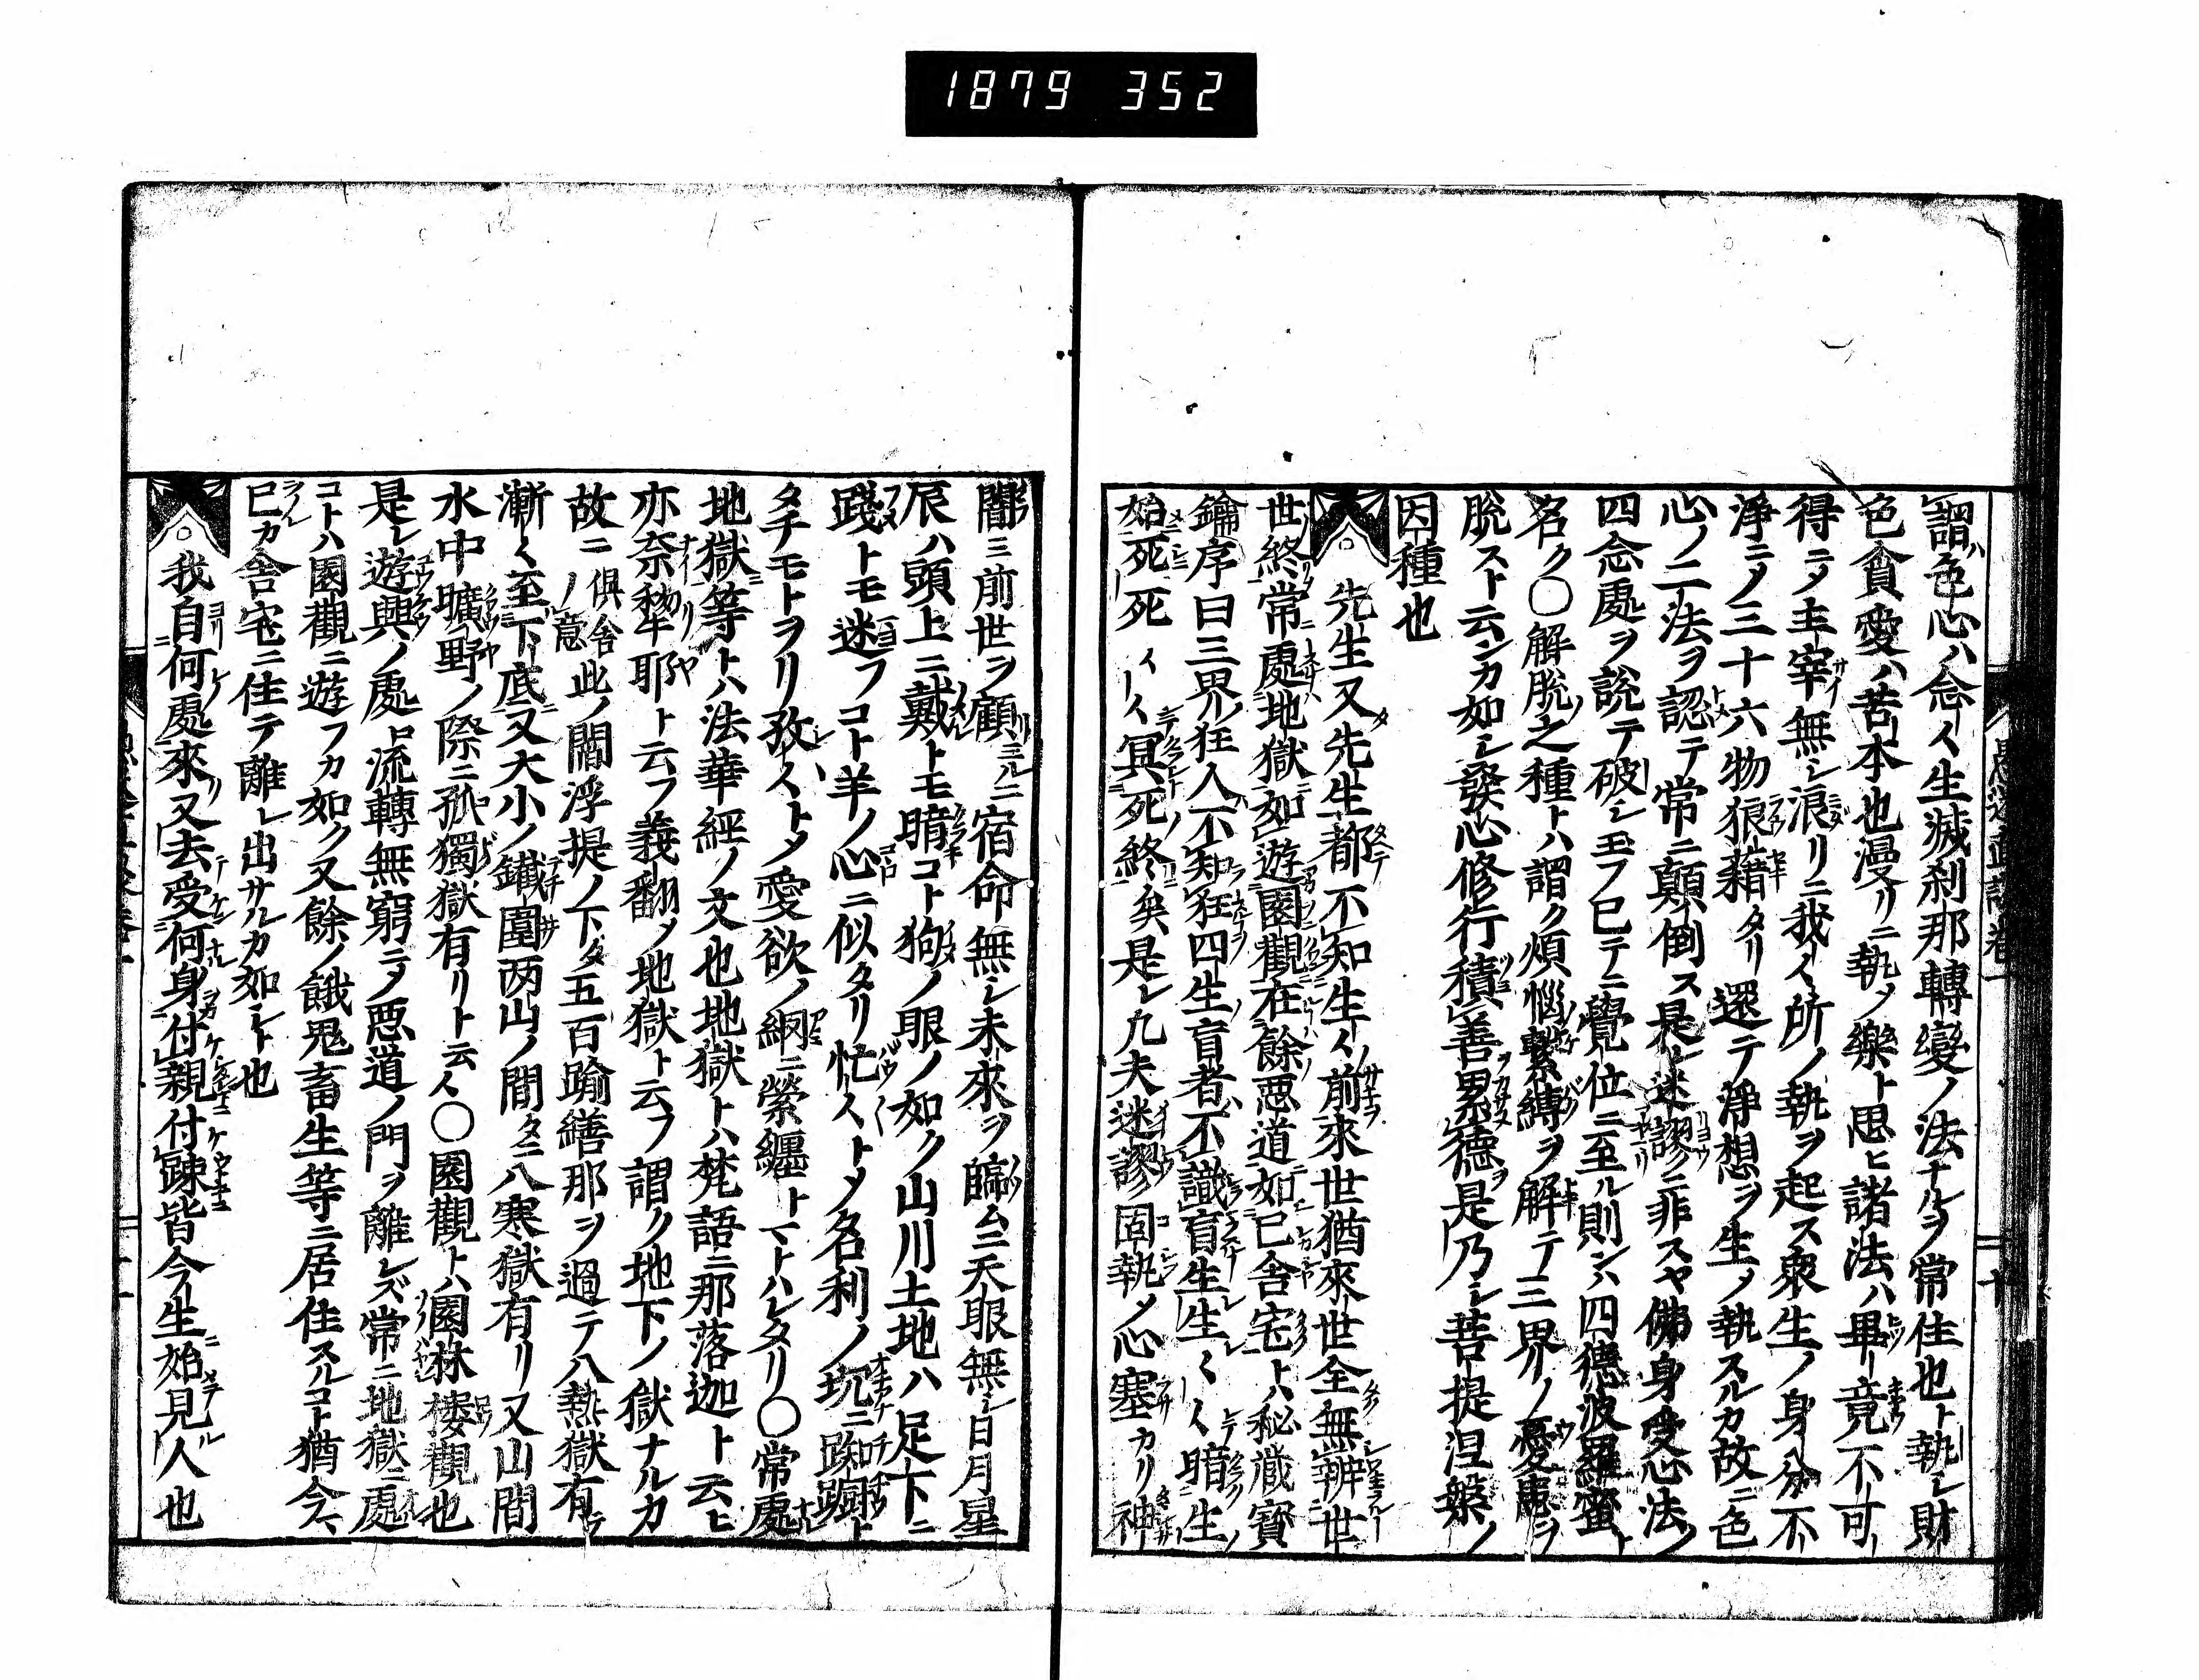 1879 352
謂色心ハ念〱生滅刹那轉變ノ法ナルヲ常住也ト執シ財
色貪愛ハ苦本也漫リニ執メ樂ト思ヒ諸法ハ畢竟不可
得ニメ主宰無シ浪リニ我〱所ノ執ヲ起ス衆生ノ身分不
淨ニメ三十六物狼藉タリ還テ淨想ヲ生メ執スルカ故ニ色
心ノ二法ヲ認テ常ニ顛倒ス是レ迷謬ニ非スヤ佛身受心法ノ
四念處ヲ説テ破シ玉フ已テニ覺位ニ至ル則ンハ四德波羅蜜ト
名ク〇解脱之種トハ謂ク煩惱繫縛ヲ解テ三界ノ憂患ヲ
脱スト云ンカ如シ發心修行積善累德是乃シ菩提涅槃ノ
因種也
。先生又先生都不知生〱前來世猶來世全無辨世
世終常處地獄如遊園觀在餘惡道如已舍宅トハ秘藏寳
鑰序曰三界狂人不知狂四生盲者不識盲生生〱〱暗生
始死死〱〱冥死終矣是レ凡夫迷謬固執メ心塞カリ神
闇ミ前世ヲ顧ルニ宿命無シ未來ヲ臨ムニ天眼無シ日月星
辰ハ頭上ニ戴トモ暗コト狗ノ眼ノ如ク山川土地ハ足下ニ
踐トモ迷フコト羊ノ心ニ似タリ忙〱トメ名利ノ坑ニ踟蹰ト
タチモトヲリ孜〱トメ愛欲ノ網ニ縈纒トマトハレタリ〇常處
地獄等トハ法華經ノ文也地獄トハ梵語ニ那落迦ト云ヒ
亦奈犂耶ト云フ義翻メ地獄ト云フ謂ク地下ノ獄ナルカ
故ニ俱舍ノ意此ノ閻浮提ノ下タ五百踰繕那ヲ過テ八熱獄有
漸〱至下底又大小ノ鐵圍両山ノ間タニ八寒獄有リ又山間
水中曠野ノ際ニ孤獨獄有リト云〱〇園觀トハ園林樓觀也
是レ遊興ノ處ロ流轉無窮ニメ惡道ノ門ヲ離レズ常ニ地獄ニ處
コトハ園觀ニ遊フカ如ク又餘ノ餓鬼畜生等ニ居住スルコト猶今
已カ舍宅ニ住テ離レ出サルカ如シト也
。我自何處來又去受何身付親付踈皆今生始見人也